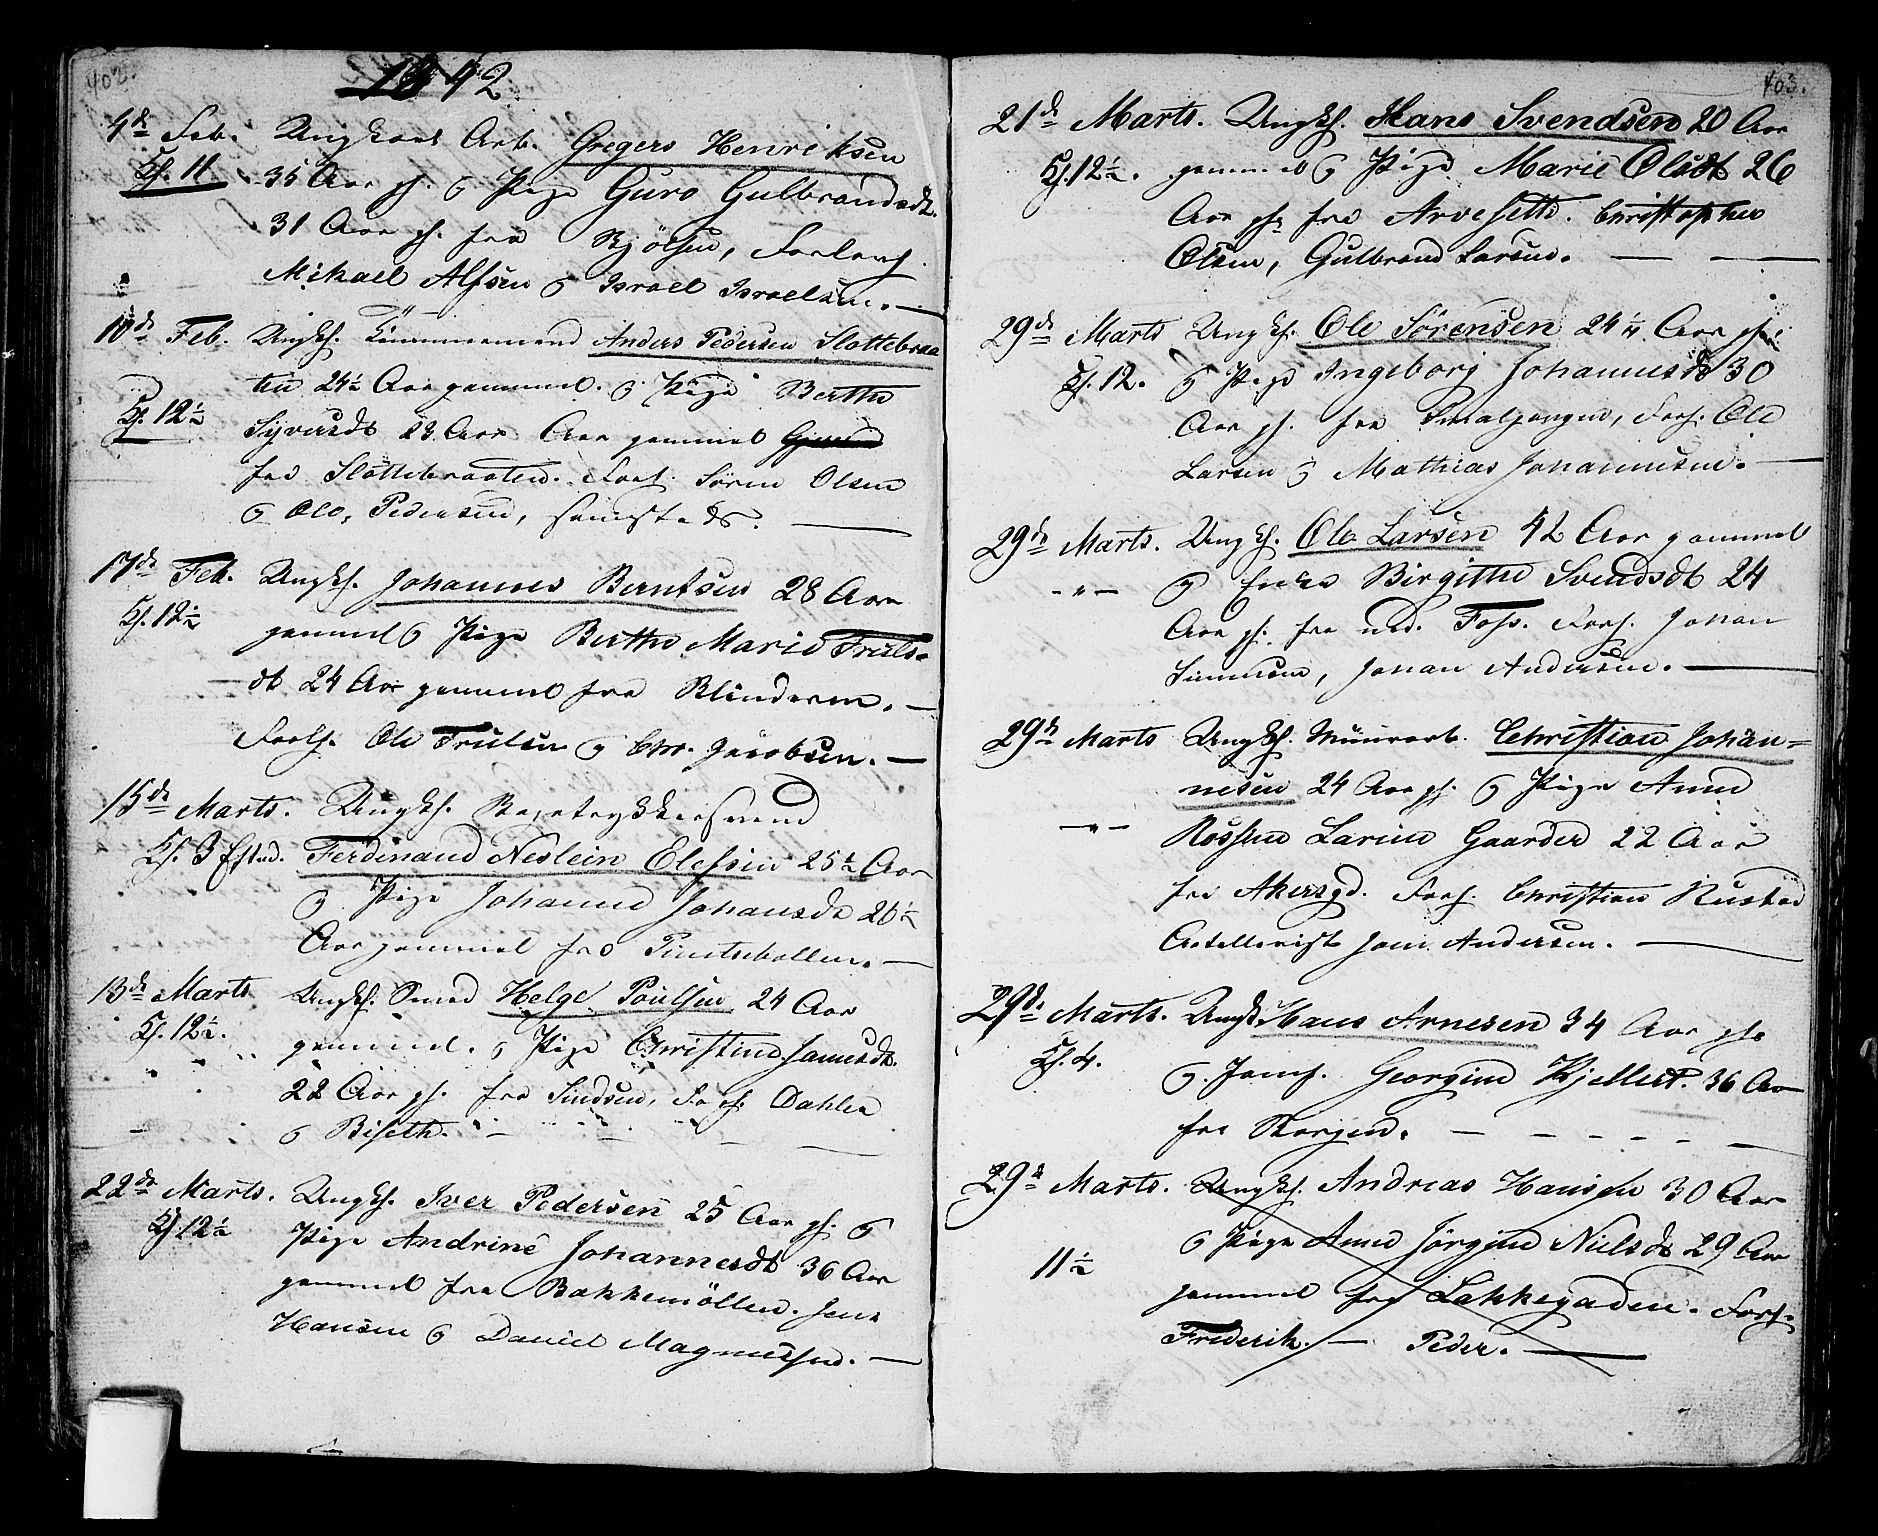 402.
1842
4de Feb. Ungkarl Arb. Gregers Henriksen
Kl. 11 35 Aar gl. og Pige Guro Gulbrandsdt.
31 Aar gl. fra Bjölsen, Forlovf.
Mikael Alfsen og Israel Israelsen. —
10de Feb. Ungk. Tömmermand Anders Pedersen Slottebraa
ten 24½ Aar gammel. og Pige Berthe
Kl. 12½ Syversdt 23 Aar Aar gammel
fra Slottebraaten. Forl. Sören Olsen
og Ole Pedersen, samsteds. —
17de Feb. Ungk. Johannes Berntsen 28 Aar
Kl. 12½ gammel og Pige Berthe Marie Truls-
dt 24 Aar gammel fra Blinderen. —
Forl. Ole Trulsen og Chr. Jacobsen. —
15de Marts. Ungk. Bogtrykkersvend
Kl. 3 Eftmd. Ferdinand Neslein Elefsen 25½ Aar
og Pige Johanne Johansdt 26½
Aar gammel fra Pinteballen. —
13de Marts Ungk. Smed Helge Poulsen 24 Aar
Kl. 12½. gammel. og Pige Christine Jansdt.
22 Aar gl. fra Sindsen, Forl. Dahlen
og Biseth. —
22de Marts. Ungk. Iver Pedersen 25 Aar gl. og
Kl. 12½ Pige Andrine Johannesdt 36 Aar
gammel fra Bakkemöllen. Jens
Hansen og Daniel Magnussen. —
403.
21de Marts. Ungk. Hans Svendsen 20 Aar
Kl. 12½. gammel og Pige Marie Olsdt 26
Aar gl. fra Arvesette. Christopher
Olsen, Gulbrand Larsen. — —
29de Marts Ungk. Ole Sörensen 24 ¼ Aar gl.
Kl. 12. og Pige Ingeborg Johannesdt 30
Aar gl. fra Smalgangen, Forl. Ole
Larsen og Mathias Johannesen. —
29de Marts. Ungk. Ole Larsen 42 Aar gammel
— " — og Enke Birgitte Svendsdt 24
Aar gl. fra ned. Foss. Forl. Johan
Simensen, Johan Andersen. —
29de Marts Ungk. Muurarb. Christian Johan=
nesen 24 Aar gl. og Pige Anne
— " — Larine Gaarder 22 Aar
fra Akersgd. Forl. Christian Rustad
Artillerist Jens Andersen. —
29de Marts. Ungk. Hans Arnesen 34 Aar gl.
Kl. 4. og Jomf. Georgine Kjellert. 36 Aar
fra Torgen. — — — — — —
29de Marts. Ungk. Andreas Hansen 30 Aar
og Pige Anne Jörgine Nielsdt 29 Aar
11½ gammel fra Lakkegaden. Forl.
Frederik. — Peder. —